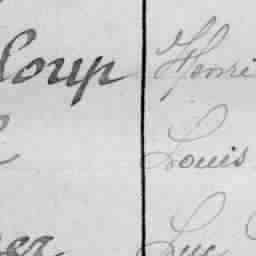 loup Henri
Louis
Luc